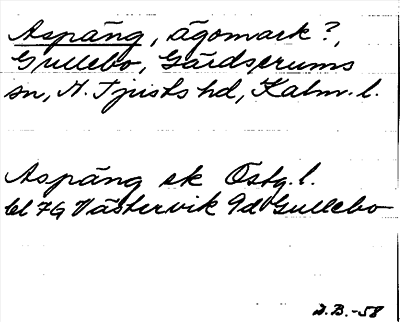 Aspäng, ägomark?,
Gullebo, Gärdserums
sn, N. Tjusts hd, Kalm. l.
Aspäng ek Östg. l.
bl 7G Västervik 9d Gullebo
D.B.-58